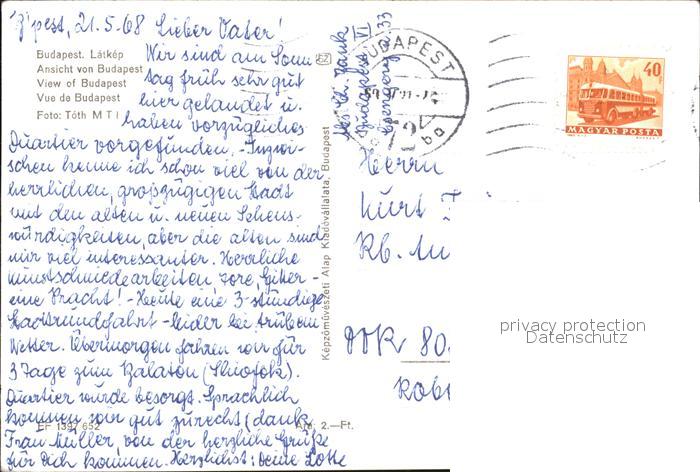 B'pest, 21.5.68 Lieber Vater!
Wir sind am Sonn
tag früh sehr gut
hier gelandet u.
haben vorzügliches
Quartier vorgefunden. - Inzwi-
schen kenne ich schon viel von der
herrlichen, großzügigen Stadt
mit den alten u. neuen Sehens-
würdigkeiten, aber die alten sind
mir viel interessanter. Herrliche
Kunstschmiedearbeiten, Tore, Gitter -
eine Pracht! - Heute eine 3-stündige
Stadtrundfahrt - leider bei trübem
Wetter. Übermorgen fahren wir für
3 Tage zum Balaton (Shiofok).
Quartier wurde besorgt. Sprachlich
kommen wir gut zurecht (dank
Frau Müller, von der herzliche Grüße
für Dich kommen. Herzlichst: Deine Lotte
Budapest. Látkép
Ansicht von Budapest
View of Budapest
Vue de Budapest
Foto: Tóth M T I
EF 1397/652
Ára: 2.—Ft.
Képzőművészeti Alap Kiadóvállalata, Budapest
Budapest VI
33
BUDAPEST
72
ba
40
MAGYAR POSTA
Herrn
Kurt
Kb.
DDR 80
privacy protection
Datenschutz